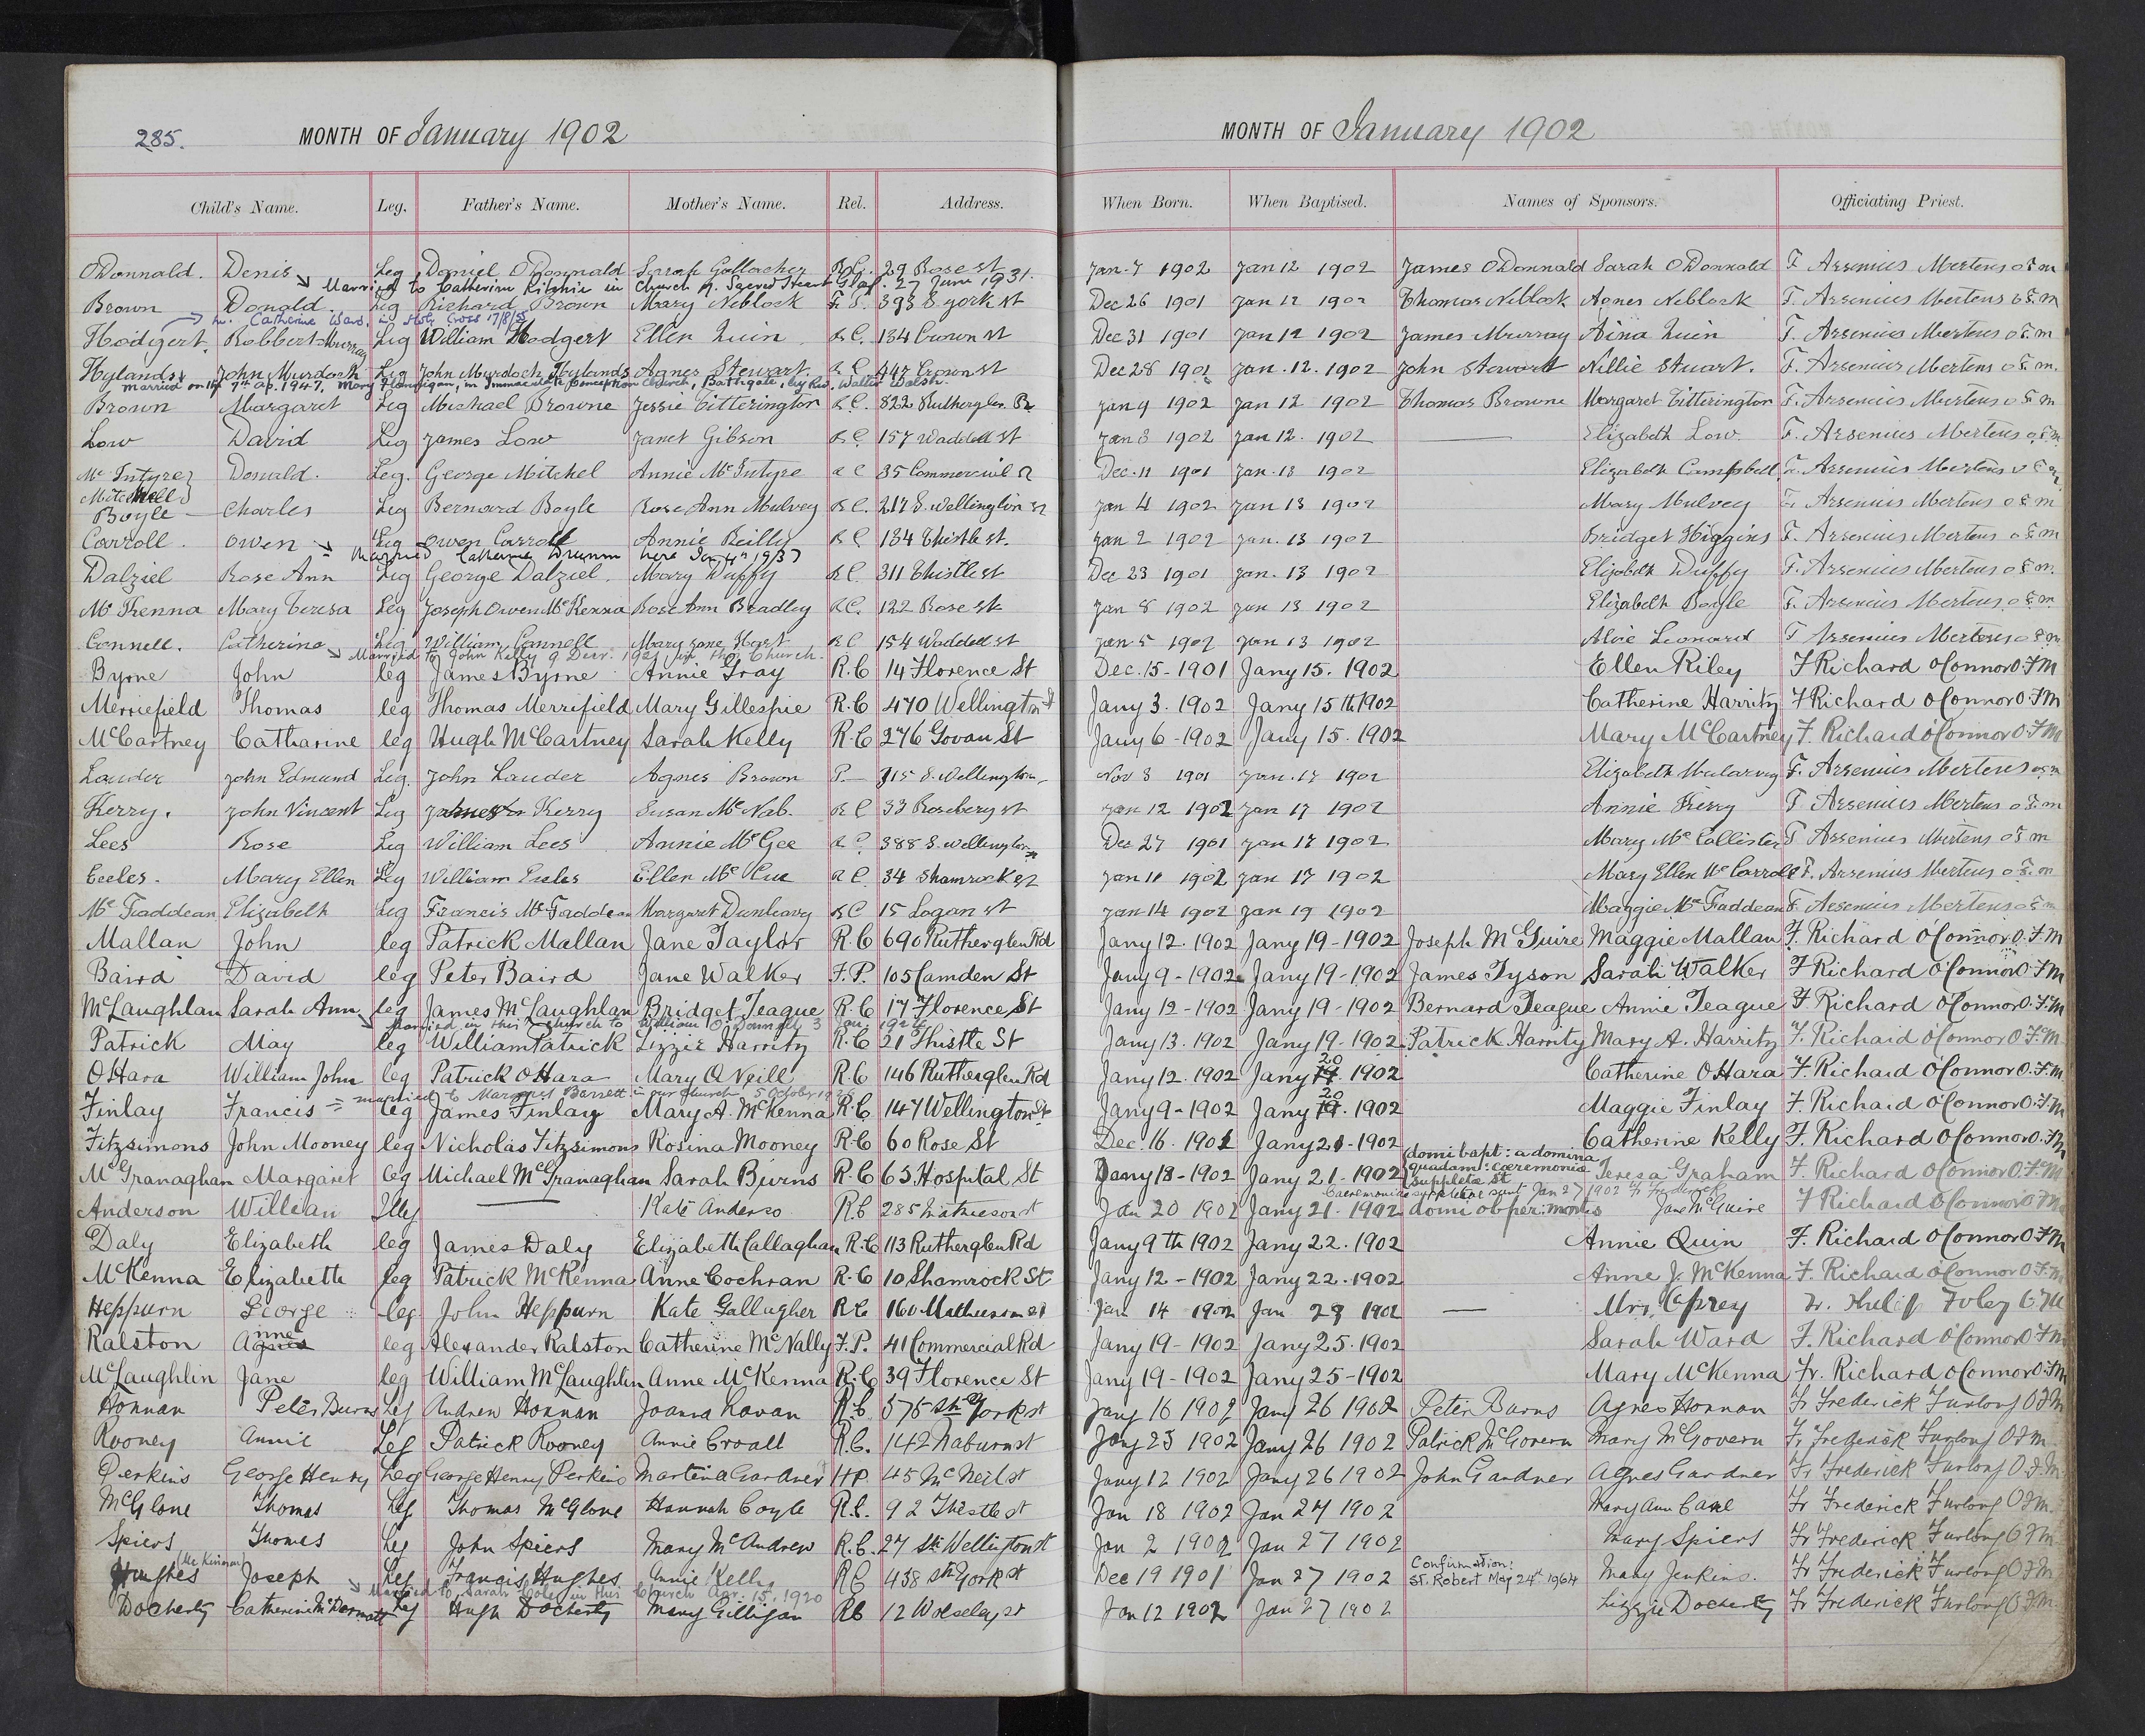 285.
MONTH OF January 1902
MONTH OF January 1902
Child's Name. Leg. Father's Name. Mother's Name. Rel. Address. When Born. When Baptised. Names of Sponsors. Officiating Priest.
O'Donnald. Denis Leg Daniel O'Donnald Sarah Gallacher R.C. 29 Rose st Jan. 7 1902 Jan 12 1902 James O'Donnald Sarah O'Donnald F. Arsenius Mertens o.f.m
Married to Catherine Ritchie in Church of Sacred Heart Glas. 27 June 1931.
Brown Donald. Leg Richard Brown Mary Neblock 393 S. york st Dec 26 1901 Jan 12 1902 Thomas Neblock Agnes Neblock F. Arsenius Mertens o.f.m
m. Catherine Ward, in Holy Cross 17/8/
Hodgert. Robbert Murray Leg William Hodgert Ellen Quin R.C. 134 Crown st Dec 31 1901 Jan 12 1902 James Murray Aina Quin F. Arsenius Mertens o.f.m
Hylands John Murdoch Leg John Murdoch Hylands Agnes Stewart. R.C. 447 Crown st Dec 28 1901 Jan. 12. 1902 John Stewart Nillie Stuart. F. Arsenius Mertens o.f.m.
married on 7th Ap. 1947, Mary Flannigan, in Immaculate Conception Church, Bathgate, by Rev. Walter Walsh.
Brown Margaret Leg Michael Browne Jessie Titterington R.C. 822 Rutherglen Rd Jan 9 1902 Jan 12 1902 Thomas Browne Margaret Titterington F. Arsenius Mertens o.f.m
Low David Leg James Low Janet Gibson R.C. 157 Waddell st Jan 8 1902 Jan 12. 1902 Elizabeth Low. F. Arsenius Mertens o.f.m.
McIntyre Donald. Leg. George Mitchel Annie McIntyre R.C. 35 Commercial R Dec. 11 1901 Jan. 13 1902 Elizabeth Campbell. F. Arsenius Mertens o.f.m
Mitchell
Boyle Charles Leg Bernard Boyle Rose Ann Mulvey R.C. 217 S. Wellington st Jan 4 1902 Jan 13 1902 Mary Mulvey F. Arsenius Mertens o.f.m
Carroll. Owen Leg Owen Carroll Annie Reilly R.C. 134 Thistle st. Jan 2 1902 Jan. 13 1902 Bridget Higgins F. Arsenius Mertens o.f.m
Married Catherine here 1937
Dalziel Rose Ann Leg George Dalziel. Mary Duffy R.C. 311 Thistle st Dec 23 1901 Jan. 13 1902 Elizabeth Duffy F. Arsenius Mertens o.f.m.
McKenna Mary Teresa Leg Joseph Owen McKenna Rose Ann Bradley R.C. 122 Rose st Jan 8 1902 Jan 13 1902 Elizabeth Boyle F. Arsenius Mertens o.f.m.
Connell. Catherine Leg William Connell Mary Jane Hart R.C. 154 Waddell st Jan 5 1902 Jan 13 1902 Alice Leonard F. Arsenius Mertens o.f.m
Married to John Kelly 9 1921 in this Church.
Byrne John leg James Byrne Annie Gray R.C 14 Florence St Dec. 15 - 1901 Jany 15. 1902 Ellen Riley F Richard O'Connor O.F.M
Merriefield Thomas leg Thomas Merrifield Mary Gillespie R.C 470 Wellington St Jany 3. 1902 Jany 15th 1902 Catherine Harrity F Richard O'Connor O.F.M
McCartney Catharine leg Hugh McCartney Sarah Kelly R.C 276 Govan St Jany 6 - 1902 Jany 15. 1902 Mary McCartney F. Richard O'Connor O.F.M
Lauder John Edmund Leg. John Lauder Agnes Brown P. 315 S. Wellington Nov 8 1901 Jan. 17 1902 Elizabeth Mularvey F. Arsenius Mertens o.f.m
Kerry. John Vincent Leg James Kerry Susan McNab. R.C 33 Rosebery st Jan 12 1902 Jan 17 1902 Annie Kerry F. Arsenius Mertens o.f.m
Lees Rose Leg William Lees Annie McGee R.C. 388 S. Wellington st Dec 27 1901 Jan 17 1902 Mary McCallister F. Arsenius Mertens o.f.m
Eccles. Mary Ellen Leg William Eccles Ellen McCue R.C. 34 Shamrock st Jan 11 1902 Jan 17 1902 Mary Ellen McCarroll F. Arsenius Mertens o.f.m
McFaddean Elizabeth Leg Francis McFaddean Margaret Dunleavy R.C 15 Logan st Jan 14 1902 Jan 19 1902 Maggie McFaddean F. Arsenius Mertens o.f.m
Mallan John leg Patrick Mallan Jane Taylor R.C 690 Rutherglen Rd Jany 12. 1902 Jany 19 - 1902 Joseph McGuire Maggie Mallan F. Richard O'Connor O.F.M
Baird David leg Peter Baird Jane Walker F.P. 105 Camden St Jany 9 - 1902 Jany 19 - 1902 James Tyson Sarah Walker F Richard O'Connor O.F.M
McLaughlan Sarah Ann leg James McLaughlan Bridget Teague R.C 17 Florence St Jany 12 - 1902 Jany 19 - 1902 Bernard Teague Annie Teague F. Richard O'Connor O.F.M
Married in this church to William O'Donnell 3 Jan. 1924
Patrick May leg William Patrick Lizzie Harrity R.C 21 Thistle St Jany 13. 1902 Jany 19 - 1902 Patrick Harrity Mary A. Harrity F. Richard O'Connor O.F.M
O'Hara William John leg Patrick O'Hara Mary O'Neill R.C 146 Rutherglen Rd Jany 12. 1902 Jany 19 20. 1902 Catherine O'Hara F. Richard O'Connor O.F.M.
married to Margaret Barrett in our church 5 October 19
Finlay Francis leg James Finlay Mary A. McKenna R.C 147 Wellington St Jany 9 - 1902 Jany 19 20. 1902 Maggie Finlay F. Richard O'Connor O.F.M
Fitzsimons John Mooney leg Nicholas Fitzsimons Rosina Mooney R.C 60 Rose St Dec. 16. 1901 Jany 21 - 1902 Catherine Kelly F. Richard O'Connor O.F.M
McGranaghan Margaret leg Michael McGranaghan Sarah Burns R.C 63 Hospital St Jany 18 - 1902 Jany 21 - 1902 domi bapt: a domina quadam: cæremoniæ suppletæ st Teresa Graham F. Richard O'Connor O.F.M
Caeremoniæ suppletæ sunt Jan 27 1902 Fr Frederick
Anderson William Illeg Kate Anderso R.C 285 Mathieson st Jan 20 1902 Jany 21. 1902 domi ob per: mortis Jane McGuire F Richard O'Connor O.F.M
Daly Elizabeth leg James Daly Elizabeth Callaghan R.C 113 Rutherglen Rd Jany 9th 1902 Jany 22. 1902 Annie Quin F. Richard O'Connor O.F.M
McKenna Elizabeth leg Patrick McKenna Anne Cochran R.C 10 Shamrock St Jany 12 - 1902 Jany 22. 1902 Anne J. McKenna F. Richard O'Connor O.F.M
Heppurn George leg John Heppurn Kate Gallugher R.C 160 Mathieson st Jan 14 1902 Jan 23 1902 Mrs. Fr. Philip Foley O.F.M
Ralston Agnes nne leg Alexander Ralston Catherine McNally F.P. 41 Commercial Rd Jany 19 - 1902 Jany 25. 1902 Sarah Ward F. Richard O'Connor O.F.M
McLaughlin Jane leg William McLaughlin Anne McKenna R.C 39 Florence St Jany 19 - 1902 Jany 25 - 1902 Mary McKenna Fr. Richard O'Connor O.F.M
Honnan Peter Burns Leg Andrew Honnan Joanna Kavan R.C. 575 Sth York st Jany 16 1902 Jany 26 1902 Peter Burns Agnes Honnan Fr Frederick Furlong O.F.M
Rooney Annie Leg Patrick Rooney Annie Croall R.C. 142 Naburn st Jany 23 1902 Jany 26 1902 Patrick McGovern Mary McGovern Fr Frederick Furlong O.F.M
Perkins George Henry Leg George Henry Perkins Martina Gardner 45 McNeil st Jany 12 1902 Jany 26 1902 John Gardner Agnes Gardner Fr Frederick Furlong O.F.M.
McGlone Thomas Leg Thomas McGlone Hannah Coyle R.C. 92 Thistle st Jan 18 1902 Jan 27 1902 Mary Ann Fr Frederick Furlong O.F.M.
Spiers Thomas Leg John Spiers Mary McAndrew R.C. 27 Sth Wellington st Jan 2 1902 Jan 27 1902 Mary Spiers Fr Frederick Furlong O.F.M.
Hughes Joseph Leg Francis Hughes Annie Kelly R.C 438 Sth York st Dec 19 1901 Jan 27 1902 Confirmation: St. Robert May 24th 1964 Mary Jenkins. Fr Frederick Furlong O.F.M.
Married to Sarah in this Church Apr. 15, 1920
Docherty Catherine McDermott Leg Hugh Docherty Mary Gilligan R.C 12 Wolseley st Jan 12 1902 Jan 27 1902 Lizzie Docherty Fr Frederick Furlong O.F.M.